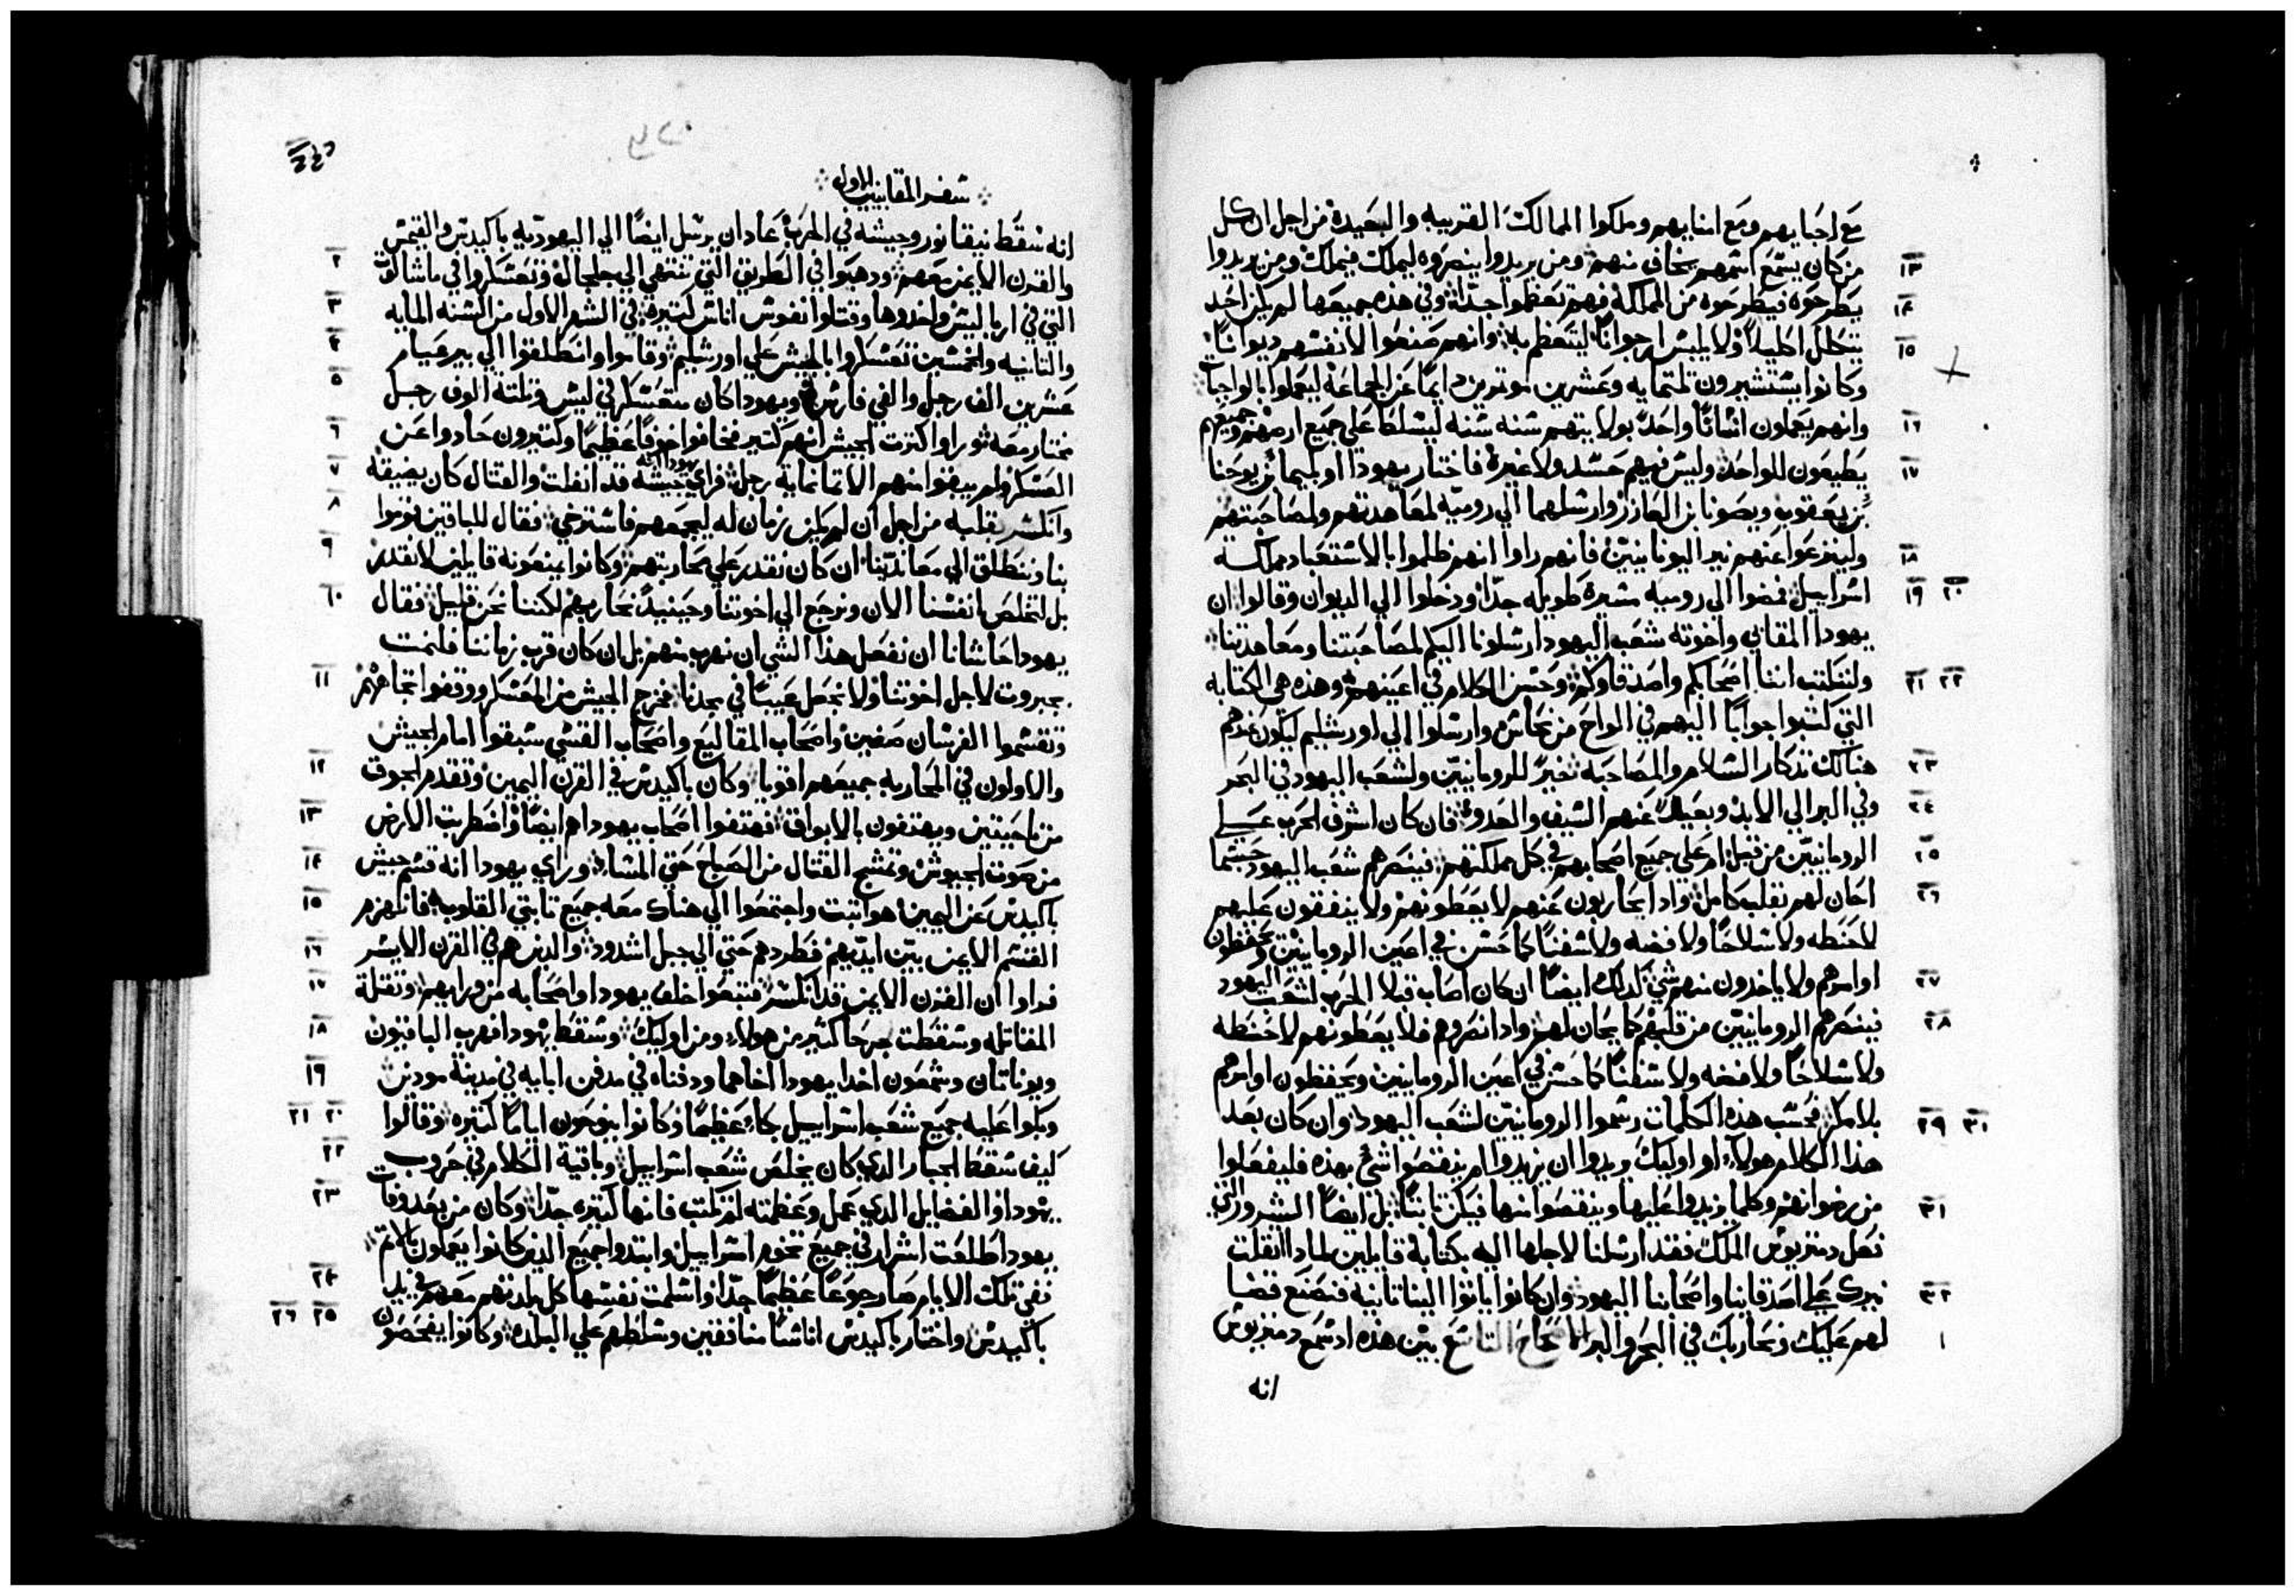 مع احبايهم ومع امنايهم وملكوا الممالك القريبه والبعيدة من اجل ان كل
١٣ من كان يسمع اسمهم يخاف منهم ومن يريدوا ينصروه ليملك فيملك ومن يريدوا
١٤ يطرحوه فيطرحوه من المملكة فهم تعظموا جدّا وفي هذه جميعها لم يكن احد
١٥ يتكلل اكليلاً ولا يلبس ارجوانًا ليتعظم به وانهم صنعوا لانفسهم ديوانًا
وكانوا يستشيرون تلتمايه وعشرين موترين دايمًا عن الجماعة ليعملوا بالواجبات
١٦ وانهم يعملون انسانًا واحدًا بولايتهم سنه سنه ليتسلط على جميع ارضهم وجميعهم
١٧ يطيعون للواحد وليس فيهم حسد ولا غيرة فاختار يهودا اوبليما بن يوحنا
بن يعقوب ويصونا بن العازر وارسلهما الي روميّه لمعاهدتهم ولمصاحبتهم
١٨ ولينزعوا عنهم نير اليونانيين فانهم راوا انهم ظلموا بالاستعباد مملكة
١٩ ٢٠ اسراييل فمضوا الى روميه مسيرة طويله جدّا ودخلوا الي الديوان وقالوا ان
يهودا المقابي واخوته شعب اليهود ارسلونا اليكم لمصاحبتنا ومعاهدتنا
٢١ ٢٢ ولنكتب اننا اصحابكم واصدقاوكم وحسن الكلام في اعينهم وهذه هي الكتابه
التي كتبوا جوابًا اليهم في الواح من نحاس وارسلوا الي اورشليم ليكون عندهم
٢٣ هنالك تذكار السلام والمصاحبه خيرًا للرومانيين ولشعب اليهود في البحر
٢٤ وفي البر الي الابد وبعيدًا عنهم السيف والعدو فان كان اشرف الحرب علي
٢٥ الرومانيين من قبل ام على جميع اصحابهم في كل مملكتهم فينصرهم شعب اليهود حسبما
٢٦ احان لهم بقلب كامل واذا يحاربون عنهم لا يعطونهم ولا ينفقون عليهم
لا حنطه ولا سلاحًا ولا فضه ولا سفنًا كما حسن في اعين الرومانيين ويحفظون
٢٧ اوامرهم ولا ياخدون منهم شي كذلك ايضًا ان كان اصاب قبلا الحرب لشعب اليهود
٢٨ فينصرهم الرومانيين من قلبهم كما يحان لهم واذا نصروهم فلا يعطونهم لا حنطه
ولا سلاحًا ولا فضه ولا سفنًا كما حسن في اعين الرومانيين ويحفظون اوامرهم
٢٩ ٣٠ بلا مكر فحسب هذه الكلمات رسموا الرومانيين لشعب اليهود وان كان بعد
هذا الكلام هولاء او اوليك يريدوا ان يزيدوا ام ينقصوا شي بهذه فليفعلوا
٣١ من رضوانهم وكلما يزيدوا عليها وينقصوا منها فيكن ثابتًا بل ايضًا الشرور التي
فعل دمتريوس الملك فقد ارسلنا لاجلها اليه بكتابة قايلين لماذا اثقلت
٣٢ نيرك علي اصدقاينا واصحابنا اليهود وان كانوا ياتوا الينا ثانيه فنصنع قضا
١ لهم عليك ونحاربك في البحر والبر الاصحاح التاسع بين هذه اذ سمع دمتريوس
انه
سفر المقابيين الاول
انه سقط نيقانور وجيشه في الحرب عاد ان يرسل ايضًا الي اليهوديه باكيديس والقيمس
٢ والقرن الايمن معهم ودهبوا في الطريق التي تنتهي الي جلجال وتعسكروا في ماسالوت
٣ التي في ارباليس واخذوها وقتلوا نفوس اناس كتيره في الشهر الاول من السنه المايه
٤ والتانيه والخمسين تعسكروا بالجيش علي اورشليم وقاموا وانطلقوا الي بيرعيام
٥ عشرين الف رجل والفي فارس ويهودا كان متعسكر في ليس وتلتة الوف رجل
٦ مختار معه ثم راوا كثرت الجيش انهم كتير فخافوا خوفًا عظيمًا وكتيرون حادوا عن
٧ العسكر ولم يبقوا منهم الا تمانماية رجل فراي يهودا انه جيشه قد انفلت والقتال كان يضيقه
٨ وانكسر بقلبه من اجل ان لم يكن زمان له ليجمعهم فاسترخي فقال للباقين قوموا
٩ بنا وننطلق الي معاندينا ان كان نقدر علي محاربتهم وكانوا يمنعونه قايلين لا نقدر
١٠ بل لنخلص انفسنا الان ونرجع الي اخوتنا وحينيذ نحاربهم لكننا نحن قليل فقال
يهودا حاشانا ان نفعل هذا الشي ان نهرب منهم بل ان كان قرب زماننا فلنمت
١١ بجبروت لاجل اخوتنا ولا نجعل عيبًا في مجدنا فخرج الجيش من المعسكر ووقفوا تجاههم
وتقسموا الفرسان صفين واصحاب المقاليع واصحاب القسي سبقوا امام الجيش
١٢ والاولون في المحاربه جميعهم اقويا وكان باكيديس في القرن اليمين وتقدم الجوق
١٣ من ناحيتين ويهتفون بالابواق فهتفوا اصحاب يهودا هم ايضًا واضطربت الارض
١٤ من صوت الجيوش وتمشج القتال من الصباح حتي المسا وراي يهودا انه قسم جيش
١٥ باكيديس عن اليمين هو اثبت واجتمعوا الي هناك معه جميع ثابتي القلوب فانهزم
١٦ القسم الايمن بين ايديهم فطردهم حتي الي جبل اشدود والذين هم في القرن الايسر
١٧ فراوا ان القرن الايمن قد انكسر فتبعوا خلف يهودا واصحابه من ورايهم وتقلة
١٨ المقاتله وسقطت جرحا كثير من هولاء ومن اوليك وسقط يهودا فهرب الباقيون
١٩ ويوناتان وشمعون اخدا يهودا اخاهما ودفناه في مدفن ابايه في مدينة مودين
٢٠ ٢١ وبكوا عليه جميع شعب اسراييل بكاءً عظيمًا وكانوا ينوحون ايامًا كتيره وقالوا
٢٢ كيف سقط الجبار الذي كان يخلص شعب اسراييل وباقية الكلام في حروب
٢٣ يهودا والفضايل الذي عمل وعظمته لم تكتب فانها كتيره جدّا وكان من بعد وفات
يهودا طلعت اشرار في جميع تخوم اسراييل وابتدوا جميع الذين كانوا يعملون بالاتم
٢٤ ففي تلك الايام صار جوعًا عظيمًا جدّا واسلمت نفسها كل بلدتهم معهم في يد
٢٥ ٢٦ باكيديس واختار باكيديس اناسًا منافقين وسلطهم علي البلده وكانوا يفحصون